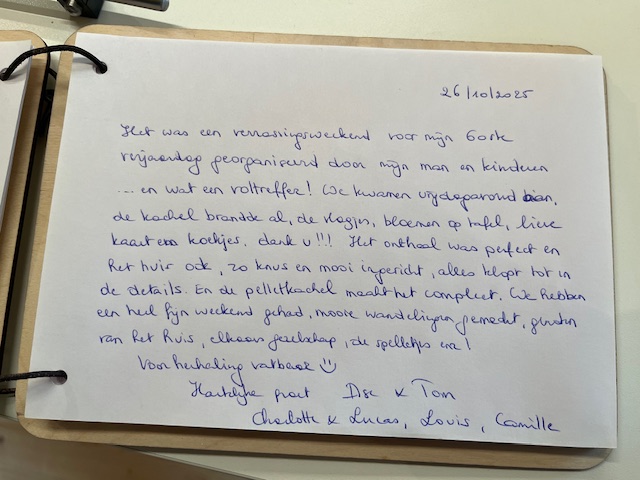 26/10/2025
Het was een verrassingsweekend voor mijn 60ste
verjaardag georganiseerd door mijn man en kinderen
... en wat een voltreffer! We kwamen vrijdagavond aan,
de kachel brandde al, de vlagjes, bloemen op tafel, lieve
kaart en koekjes, dank u!!! Het onthaal was perfect en
het huis ook, zo knus en mooi ingericht, alles klopt tot in
de details. En de pelletkachel maakt het compleet. We hebben
een heel fijn weekend gehad, mooie wandelingen gemaakt, genoten
van het huis, elkaars gezelschap, de spelletjes enz!
Voor herhaling vatbaar
Hartelijke groet Ilse & Tom
Charlotte & Lucas, Louis, Camille